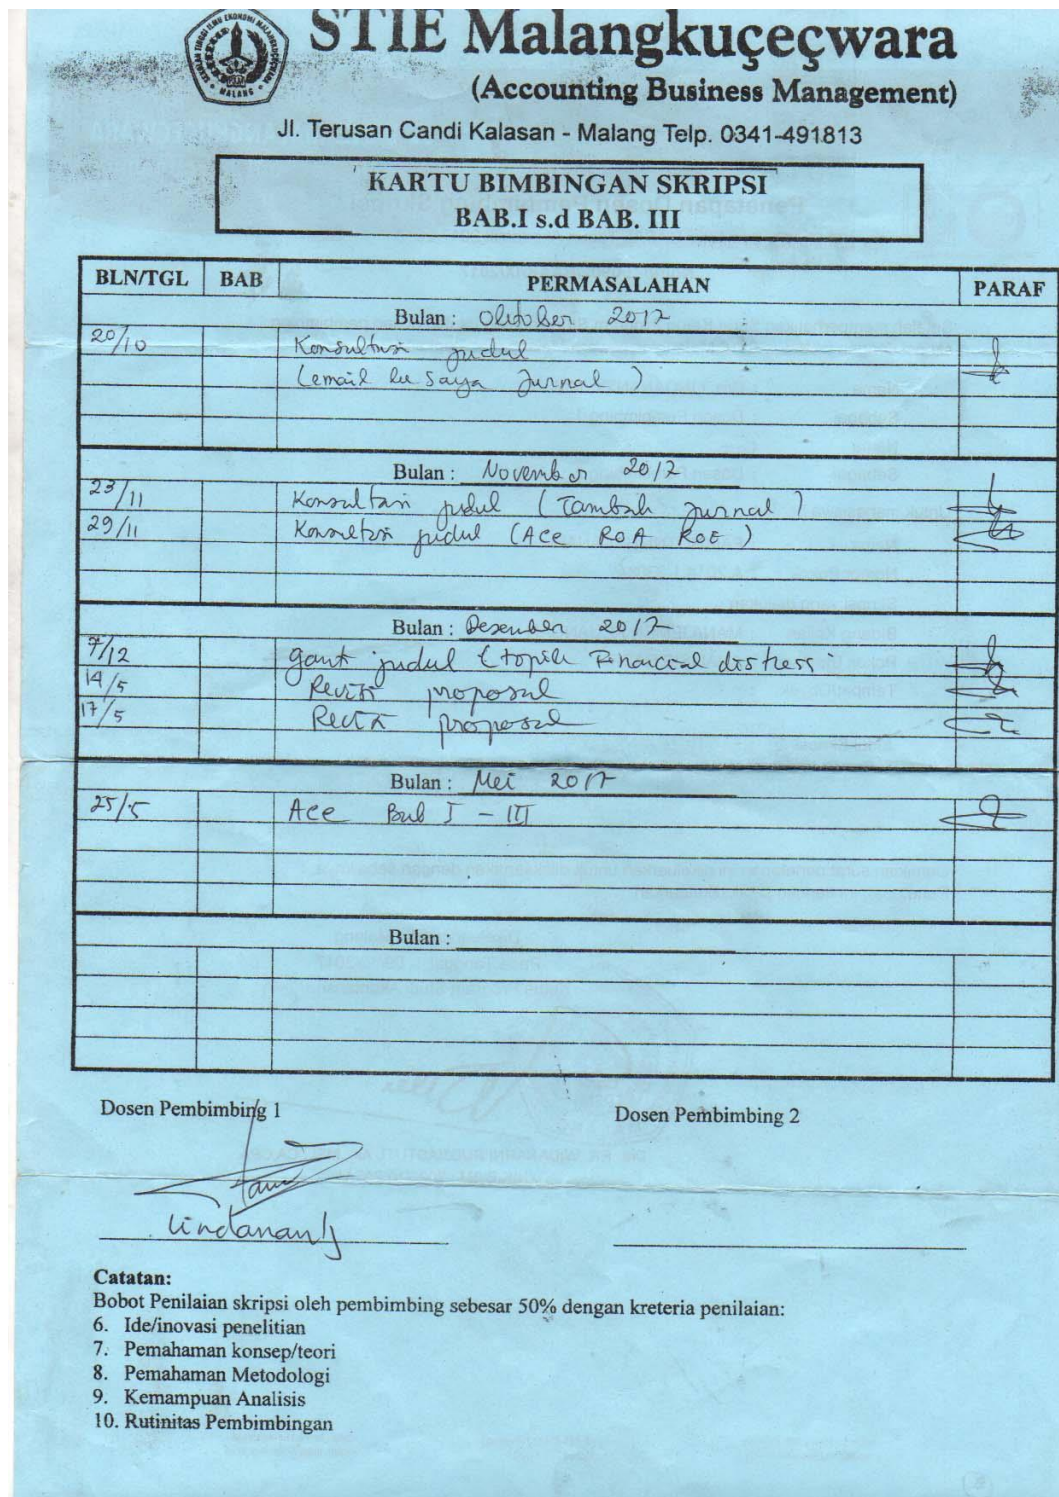 STIE Malangkuçeçwara
(Accounting Business Management)
Jl. Terusan Candi Kalasan - Malang Telp. 0341-491813
KARTU BIMBINGAN SKRIPSI
BAB.I s.d BAB. III
BLN/TGL BAB PERMASALAHAN PARAF
Bulan : Oktober 2017
20/10 Konsultasi judul
(email ke saya Jurnal)
Bulan : November 2017
23/11 Konsultasi judul (Tambah Jurnal)
29/11 Konsultasi judul (Acc ROA ROE)
Bulan : Desember 2017
7/12 ganti judul (topik Financial distress
14/5 Revisi proposal
17/5 Revisi proposal
Bulan : Mei 2017
25/5 Acc Bab I - III
Bulan :
Dosen Pembimbing 1 Dosen Pembimbing 2
Catatan:
Bobot Penilaian skripsi oleh pembimbing sebesar 50% dengan kreteria penilaian:
6. Ide/inovasi penelitian
7. Pemahaman konsep/teori
8. Pemahaman Metodologi
9. Kemampuan Analisis
10. Rutinitas Pembimbingan